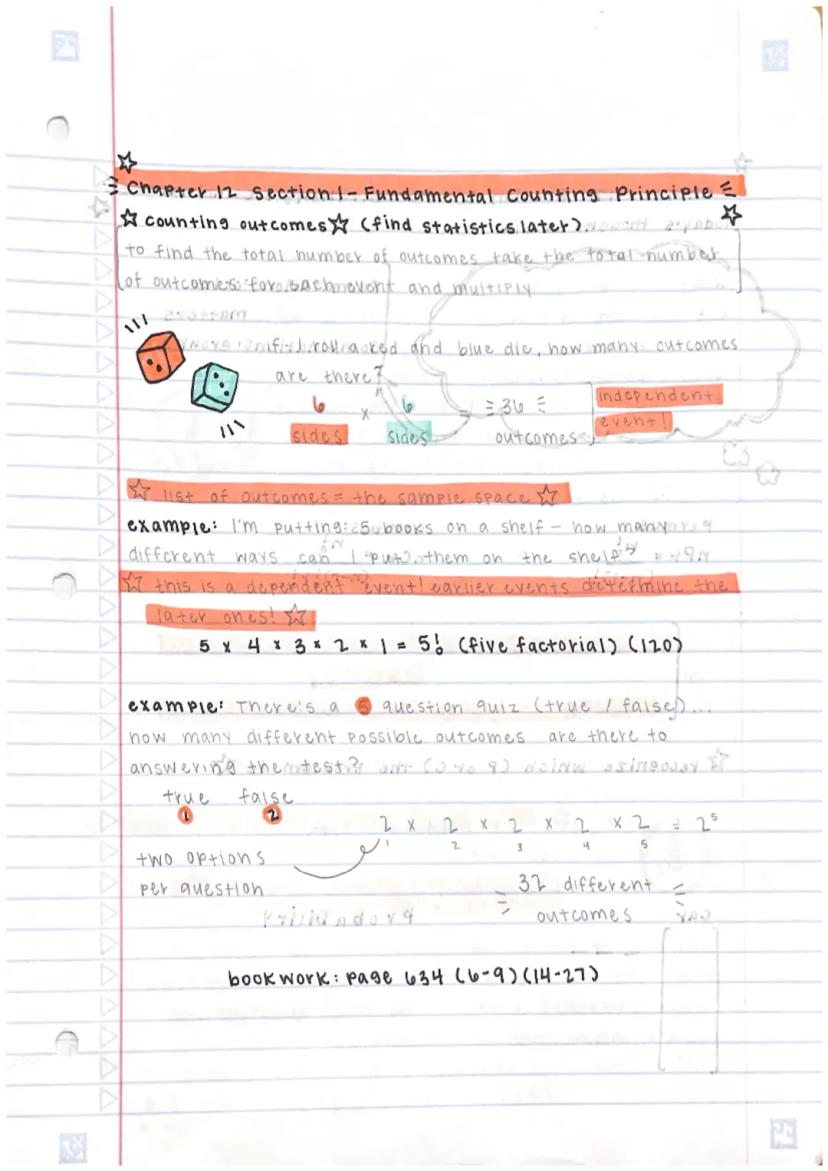 Chapter 12 Section 1 - Fundamental Counting Principle
☆ counting outcomes ☆ (find statistics later).
to find the total number of outcomes take the total number
of outcomes for each event and multiply
if I roll a red and blue die, how many outcomes
are there?
6 x 6 = 36
sides sides outcomes
independent
event!
☆ list of outcomes = the sample space ☆
example: I'm putting 5 books on a shelf - how many
different ways can I put them on the shelf?
☆ this is a dependent event! earlier events determine the
later ones! ☆
5 x 4 x 3 x 2 x 1 = 5! (five factorial) (120)
example: There's a 5 question quiz (true / false)...
how many different possible outcomes are there to
answering the test?
true false
1 2
2 x 2 x 2 x 2 x 2 = 2⁵
1 2 3 4 5
two options
per question
32 different
outcomes
bookwork: page 634 (6-9) (14-27)